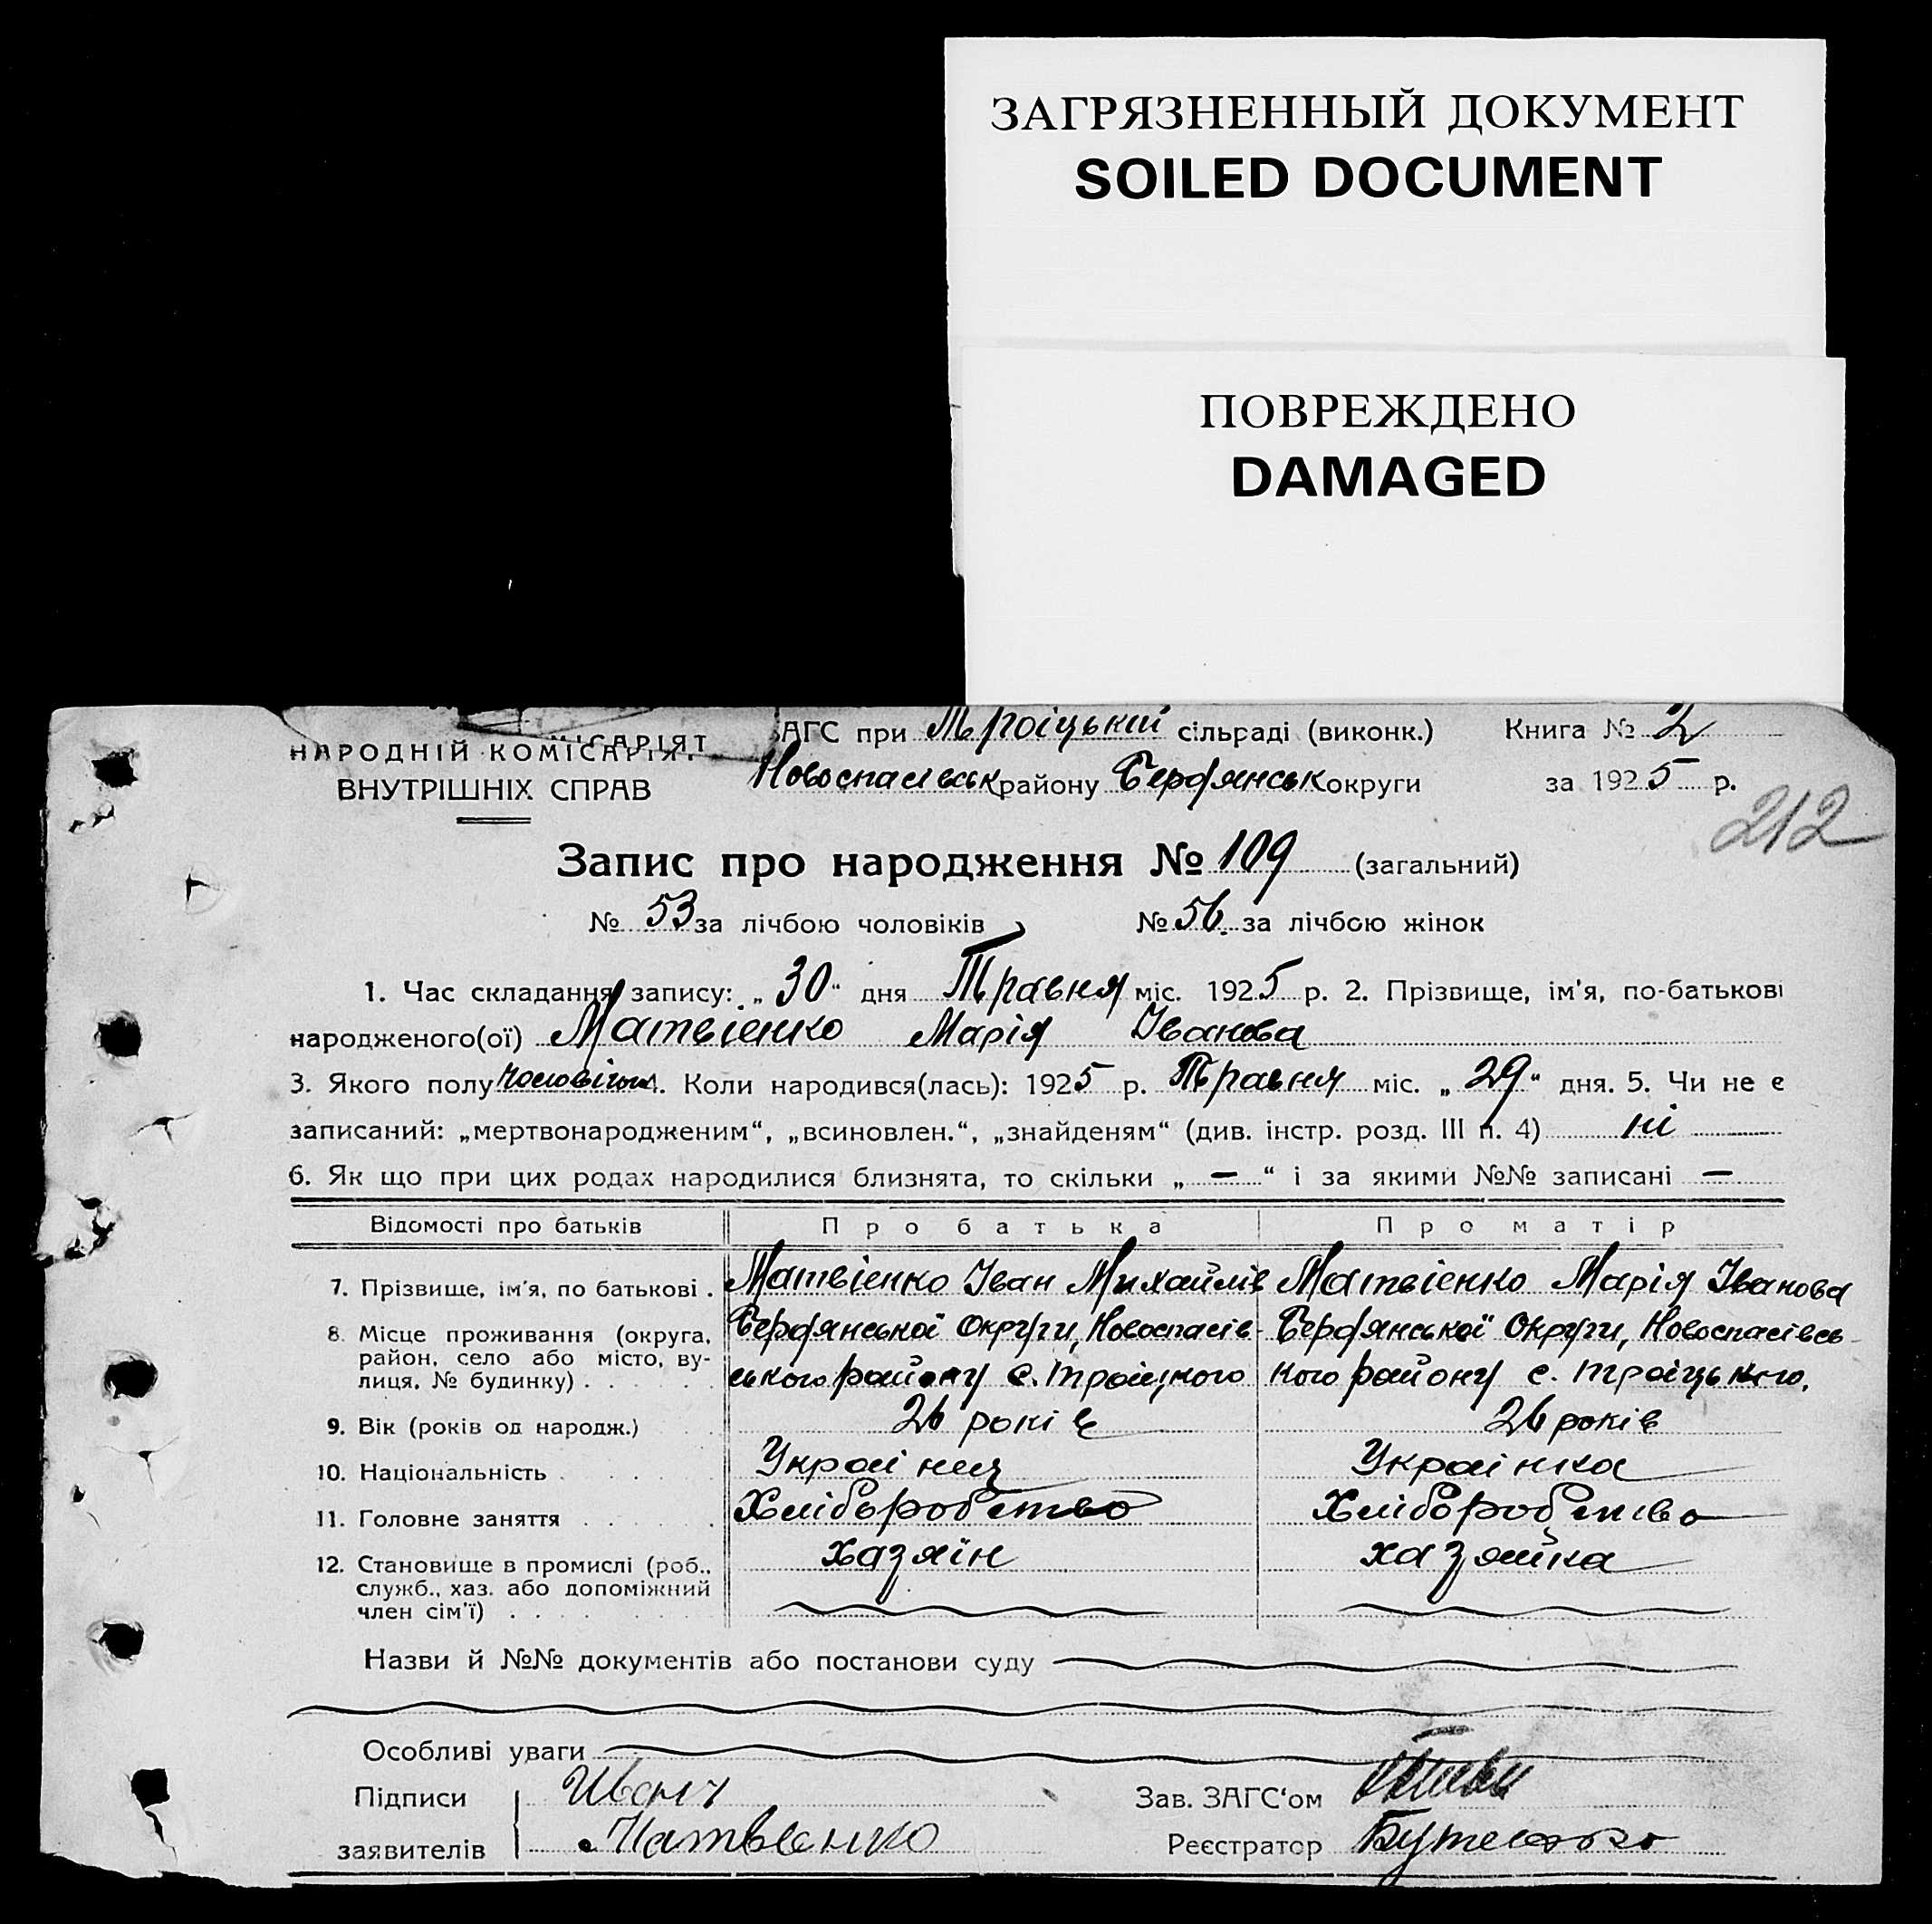 ЗАГРЯЗНЕННЫЙ ДОКУМЕНТ
SOILED DOCUMENT
ПОВРЕЖДЕНО
DAMAGED
НАРОДНІЙ КОМІСАРІЯТ
ВНУТРІШНІХ СПРАВ
ЗАГС при Троіцькій сільраді (виконк.) Книга № 2
Новоспасівськ району Бердянськ округи за 1925 р.
212
Запис про народження № 109 (загальний)
№ 53 за лічбою чоловіків № 56 за лічбою жінок
1. Час складання запису: „30“ дня Травня міс. 1925 р. 2. Прізвище, ім'я, по-батькові
народженого(ої) Матвіенко Марія Іванова
3. Якого полу 4. Коли народився(лась): 1925 р. Травня міс. „29“ дня. 5. Чи не є
записаний: „мертвонародженим“, „всиновлен.“, „знайденям“ (див. інстр. розд. III п. 4) ні
6. Як що при цих родах народилися близнята, то скільки „—“ і за якими №№ записані —
Відомості про батьків Про батька Про матір
7. Прізвище, ім'я, по батькові . Матвіенко Іван Михайлів Матвіенко Марія Іванова
8. Місце проживання (округа, Бердянської Округи, Новоспасів- Бердянської Округи, Новоспасівсь-
район, село або місто, ву- ського району с. Троіцкого кого району с. Троіцького.
лиця, № будинку) . . . .
9. Вік (років од народж.) 26 років 26 років
10. Національність . . . . Украінец Украінка
11. Головне заняття . . . . Хліборобство Хліборобство
12. Становище в промислі (роб., хазяїн хазяйка
служб., хаз. або допоміжний
член сім'ї) . . . .
Назви й №№ документів або постанови суду
Особливі уваги
Підписи Иван Зав. ЗАГС'ом
заявителів Матвиенко Реєстратор Бутенко